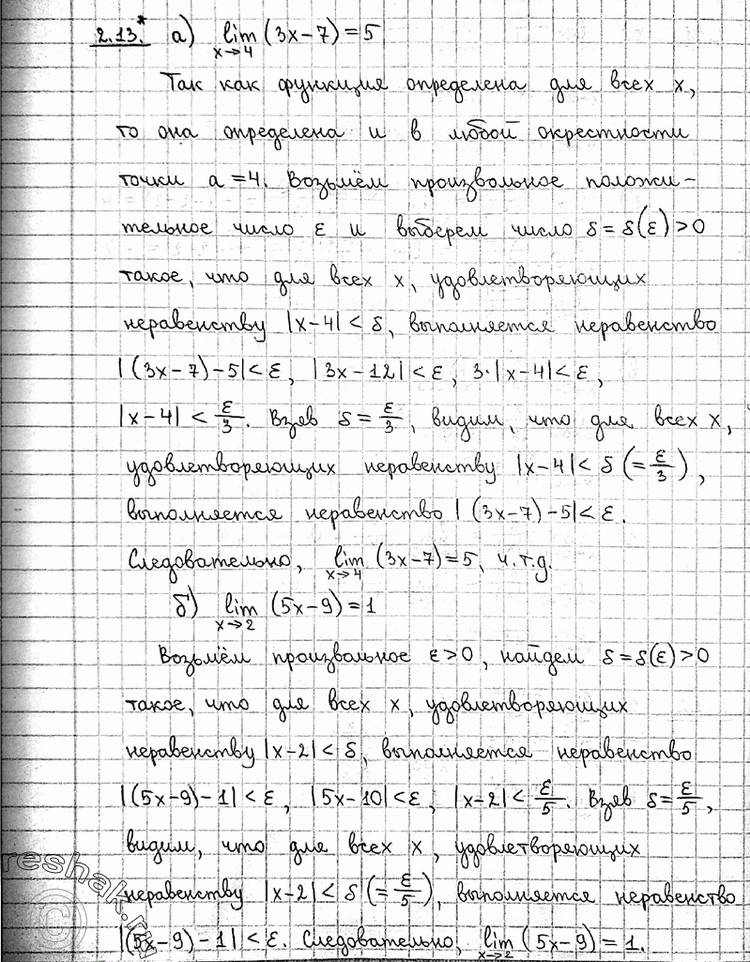 2.13.* а) lim x→4 (3x−7)=5
Так как функция определена для всех x,
то она определена и в любой окрестности
точки a=4. Возьмём произвольное положи-
тельное число ε и выберем число δ=δ(ε)>0
такое, что для всех x, удовлетворяющих
неравенству |x−4|<δ, выполняется неравенство
|(3x−7)−5|<ε, |3x−12|<ε, 3·|x−4|<ε,
|x−4|<ε/3. Взяв δ=ε/3, видим, что для всех x,
удовлетворяющих неравенству |x−4|<δ(=ε/3),
выполняется неравенство |(3x−7)−5|<ε.
Следовательно, lim x→4 (3x−7)=5, ч.т.д.
б) lim x→2 (5x−9)=1
Возьмём произвольное ε>0, найдем δ=δ(ε)>0
такое, что для всех x, удовлетворяющих
неравенству |x−2|<δ, выполняется неравенство
|(5x−9)−1|<ε, |5x−10|<ε, |x−2|<ε/5. Взяв δ=ε/5,
видим, что для всех x, удовлетворяющих
неравенству |x−2|<δ(=ε/5), выполняется неравенство
|(5x−9)−1|<ε. Следовательно, lim x→2 (5x−9)=1.
reshak.ru
©